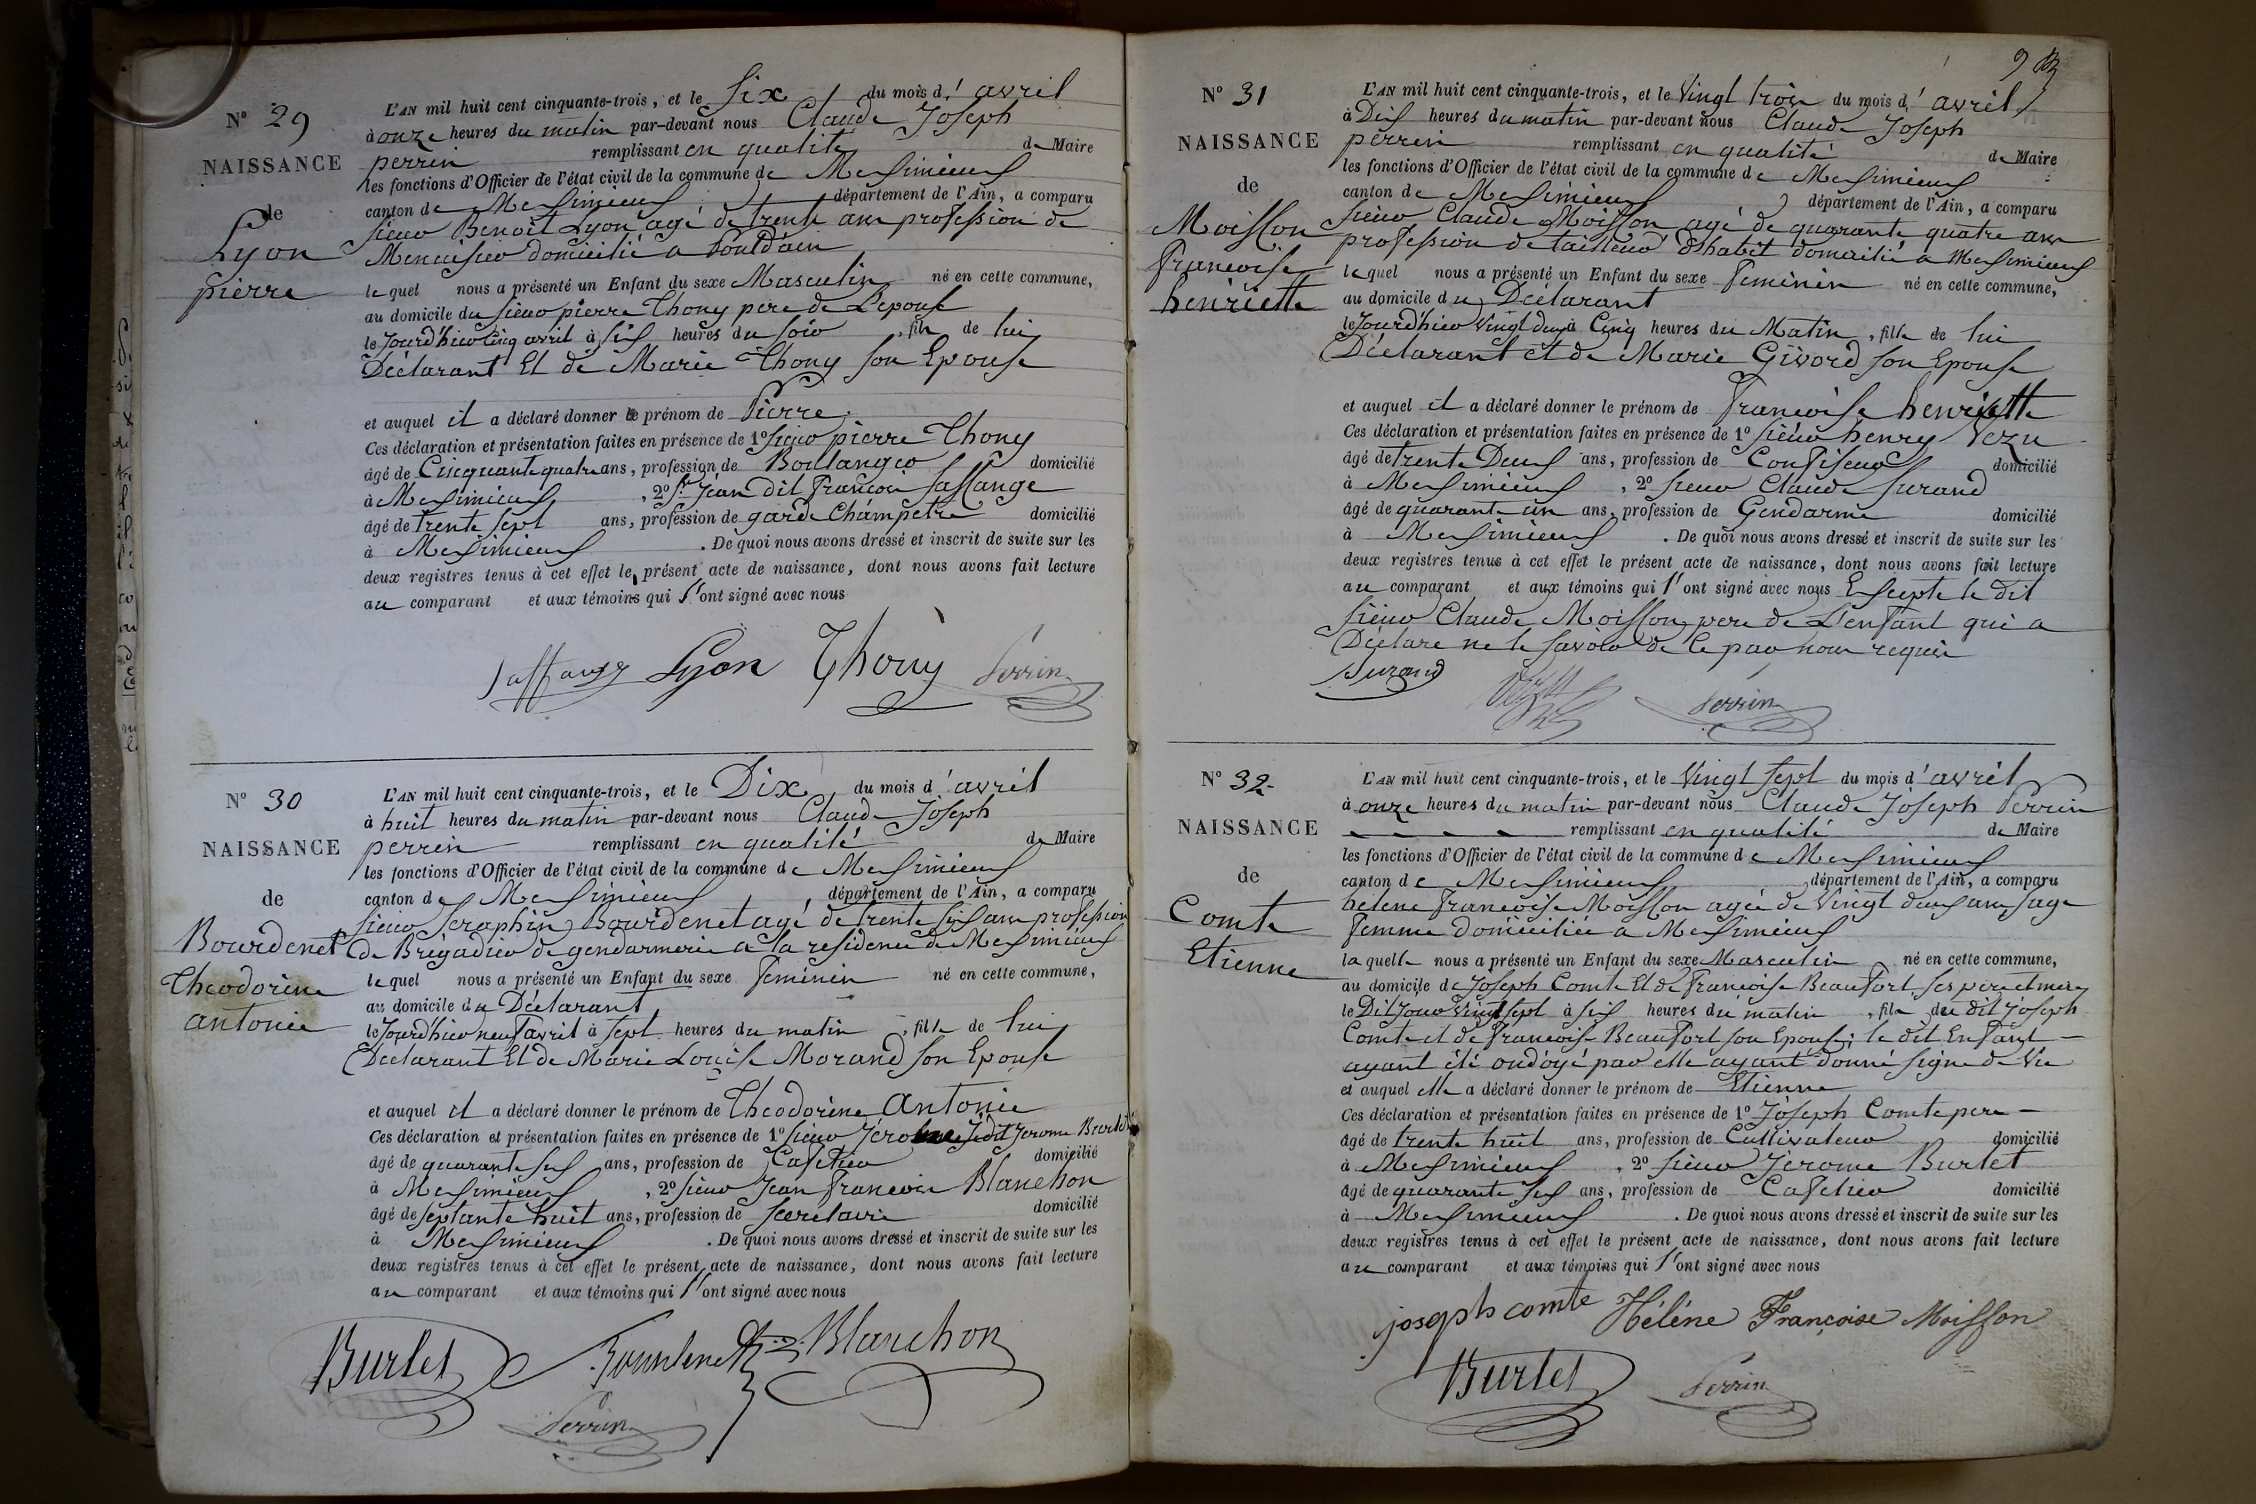 N° 29
NAISSANCE
de
Lyon
pierre
L'AN mil huit cent cinquante-trois, et le Six du mois d'avril
à onze heures du matin par-devant nous Claude Joseph
perrin remplissant en qualité de Maire
les fonctions d'Officier de l'état civil de la commune de Meximieux
canton de Meximieux département de l'Ain, a comparu
sieur Benoit Lyon agé de trente ans profession de
Menuisier domicilié a pont d'ain
lequel nous a présenté un Enfant du sexe Masculin né en cette commune,
au domicile du sieur pierre Thony pere de L'epouse
le Jourd'hier Cinq avril à six heures du soir, fils de lui
Déclarant Et de Marie Thony son Epouse
et auquel il a déclaré donner le prénom de Pierre
Ces déclaration et présentation faites en présence de 1° sieur pierre Thony
âgé de Cinquante quatre ans, profession de Boulanger domicilié
à Meximieux, 2° Sr Jean dit françois Jaffange
âgé de trente sept ans, profession de garde Champetre domicilié
à Meximieux. De quoi nous avons dressé et inscrit de suite sur les
deux registres tenus à cet effet le présent acte de naissance, dont nous avons fait lecture
au comparant et aux témoins qui l'ont signé avec nous
Lyon Thony Perrin
N° 30
NAISSANCE
de
Bourdenet
Théodorine
antonie
L'AN mil huit cent cinquante-trois, et le Dix du mois d'avril
à huit heures du matin par-devant nous Claude Joseph
perrin remplissant en qualité de Maire
les fonctions d'Officier de l'état civil de la commune de Meximieux
canton de Meximieux département de l'Ain, a comparu
sieur Seraphin Bourdenet agé de trente six ans profession
de Brigadier de gendarmerie a la residence de Meximieux
lequel nous a présenté un Enfant du sexe feminin né en cette commune,
au domicile du Déclarant
le Jourd'hier neuf avril à sept heures du matin, fille de lui
Déclarant Et de Marie Louise Morand son Epouse
et auquel il a déclaré donner le prénom de Théodorine Antonie
Ces déclaration et présentation faites en présence de 1° sieur dit Jerome Burlet
âgé de quarante six ans, profession de Cafetier domicilié
à Meximieux, 2° sieur Jean francois Blanchon
âgé de septante huit ans, profession de secretaire domicilié
à Meximieux. De quoi nous avons dressé et inscrit de suite sur les
deux registres tenus à cet effet le présent acte de naissance, dont nous avons fait lecture
au comparant et aux témoins qui l'ont signé avec nous
Burlet Bourdenet Blanchon
Perrin
9
N° 31
NAISSANCE
de
Moisson
francoise
henriette
L'AN mil huit cent cinquante-trois, et le Vingt trois du mois d'avril
à Dix heures du matin par-devant nous Claude Joseph
perrin remplissant en qualité de Maire
les fonctions d'Officier de l'état civil de la commune de Meximieux
canton de Meximieux département de l'Ain, a comparu
sieur Claude Moisson agé de quarante quatre ans
profession de tailleur d'habit domicilié a Meximieux
lequel nous a présenté un Enfant du sexe feminin né en cette commune,
au domicile du Déclarant
le Jourd'hier vingt deux à Cinq heures du Matin, fille de lui
Déclarant et de Marie Givord son Epouse
et auquel il a déclaré donner le prénom de francoise henriette
Ces déclaration et présentation faites en présence de 1° sieur henry Vezu
âgé de trente Deux ans, profession de Confiseur domicilié
à Meximieux, 2° sieur Claude Jurand
âgé de quarante un ans, profession de Gendarme domicilié
à Meximieux. De quoi nous avons dressé et inscrit de suite sur les
deux registres tenus à cet effet le présent acte de naissance, dont nous avons fait lecture
au comparant et aux témoins qui l'ont signé avec nous Excepte le dit
sieur Claude Moisson pere de L'enfant qui a
Déclare ne le savoir de ce par nous requis
Jurand Perrin
N° 32
NAISSANCE
de
Comte
Etienne
L'AN mil huit cent cinquante-trois, et le Vingt sept du mois d'avril
à onze heures du matin par-devant nous Claude Joseph Perrin
remplissant en qualité de Maire
les fonctions d'Officier de l'état civil de la commune de Meximieux
canton de Meximieux département de l'Ain, a comparu
helene francoise Moisson agée de Vingt deux ans sage
femme domiciliée a Meximieux
laquelle nous a présenté un Enfant du sexe Masculin né en cette commune,
au domicile de Joseph Comte Et de francoise Beaufort ses pere et mere
le Dit Jour Vingt sept à six heures du matin, fils du dit Joseph
Comte et de francoise Beaufort son Epouse; le dit Enfant
ayant été ondoyé par elle ayant donné signe de Vie
et auquel elle a déclaré donner le prénom de Etienne
Ces déclaration et présentation faites en présence de 1° Joseph Comte pere
âgé de trente huit ans, profession de Cultivateur domicilié
à Meximieux, 2° sieur Jerome Burlet
âgé de quarante six ans, profession de Cafetier domicilié
à Meximieux. De quoi nous avons dressé et inscrit de suite sur les
deux registres tenus à cet effet le présent acte de naissance, dont nous avons fait lecture
au comparant et aux témoins qui l'ont signé avec nous
joseph comte Hélène Françoise Moisson
Burlet Perrin